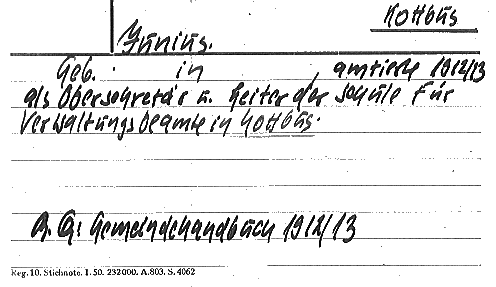 Kottbus
Junius.
Geb. in , amtierte 1912/13
als Obersekretär u. Leiter der Schule für
Verwaltungsbeamte in Kottbus.
A. G: Gemeindehandbuch 1912/13
Reg. 10. Stichnote. I. 50. 232000. A.803. S. 4062